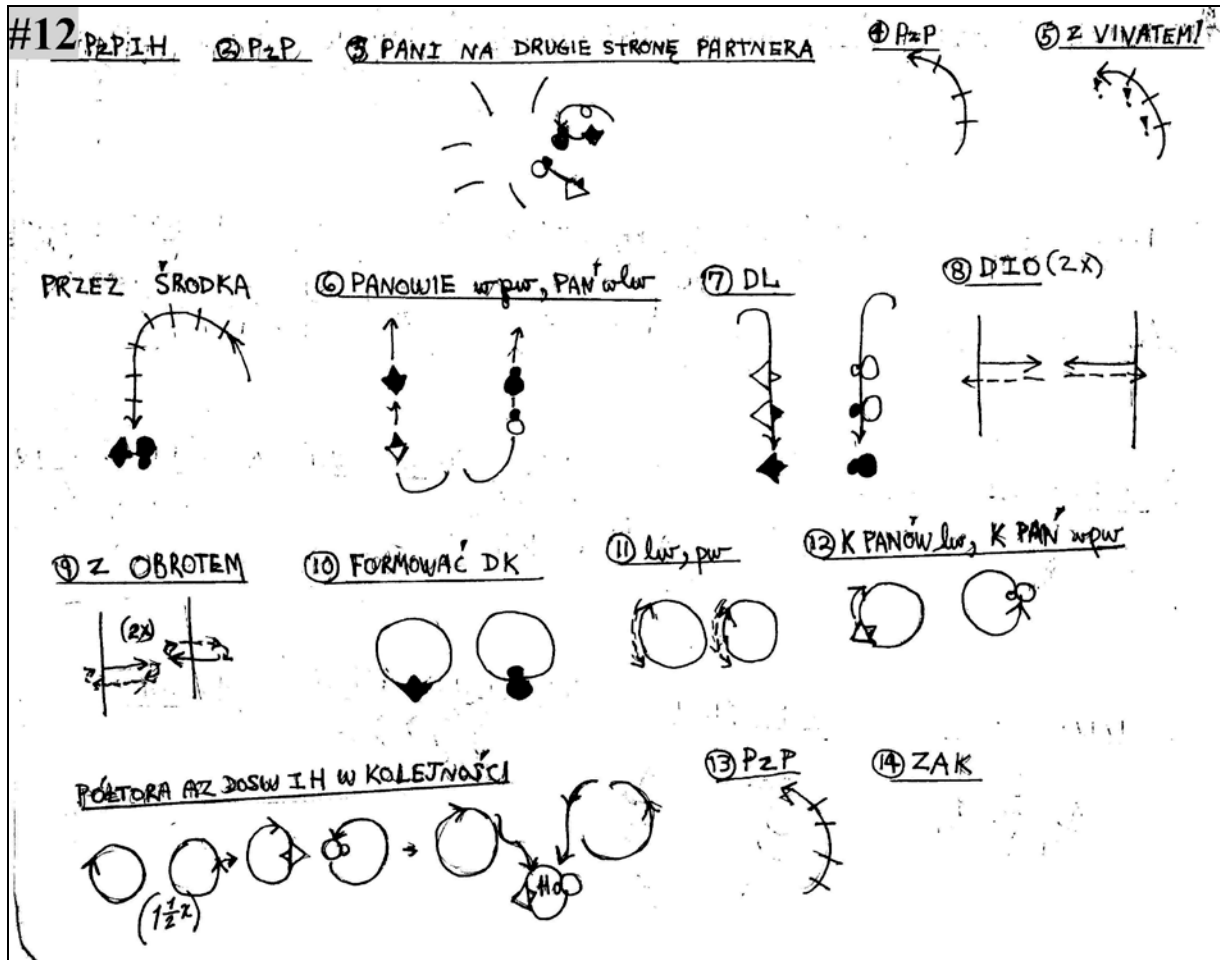 #12 PzP I H
② PzP
③ PANI NA DRUGIE STRONĘ PARTNERA
④ PzP
⑤ Z VINATEM!
PRZEZ ŚRODKA
⑥ PANOWIE w pw, PAŃ w lw
⑦ DL
⑧ DIO (2X)
⑨ Z OBROTEM
(2X)
⑩ FORMOWAĆ DK
⑪ lw, pw
⑫ K PANÓW lw, K PAŃ w pw
PÓŁTORA AZ DOSW I H W KOLEJNOŚCI
(1½x)
Ho
⑬ PzP
⑭ ZAK